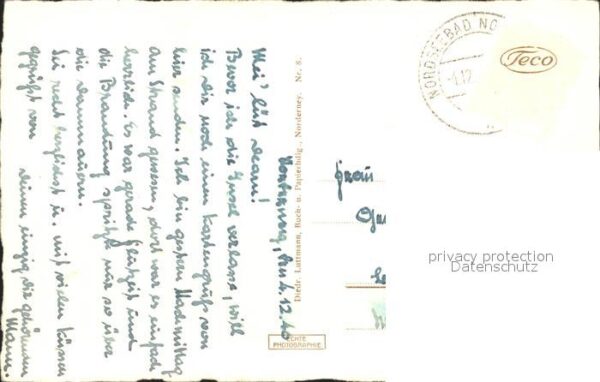 Norderney, den 4.12.40
Mei' lüb Mamm!
Bevor ich die Insel verlasse, will
ich Dir noch einen Kartengruß von
hier senden. Ich bin gestern Nachmittag
am Strand gewesen, dort war es einfach
herrlich. Es war gerade Flutzeit und
die Brandung spritzte nur so über
die Dammauern.
Sei recht herzlichst u. mit vielen Küssen
gegrüßt von
Deinem einzig, Dir gehörenden
Mann.
Diedr. Luttmann, Buch- u. Papierhdlg., Norderney. Nr. 8.
ECHTE
PHOTOGRAPHIE
Frau
NORDSEEBAD NO
Teco
privacy protection
Datenschutz